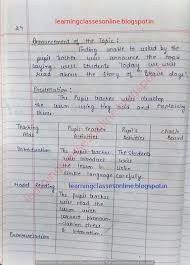 learningclassesonline.blogspot.in
29
Announcement of the Topic:
Finding unable to asked by the
pupil teacher will announce the topic
saying, well students Today we will
read about the story of "Brave days"
The pupil teacher will develop
the lesson using tlm, aid and explaining
them.
Teaching Aids
Pupil-Teacher Activities
Pupil's Activities
Chalk Board
Introduction
The pupil-teacher will introduce the lesson in simple language
The students will listen carefully.
learningclassesonline.blogspot.in
Model Reading
The pupil teacher will read the lesson with correct pronunciation stress & intonation.